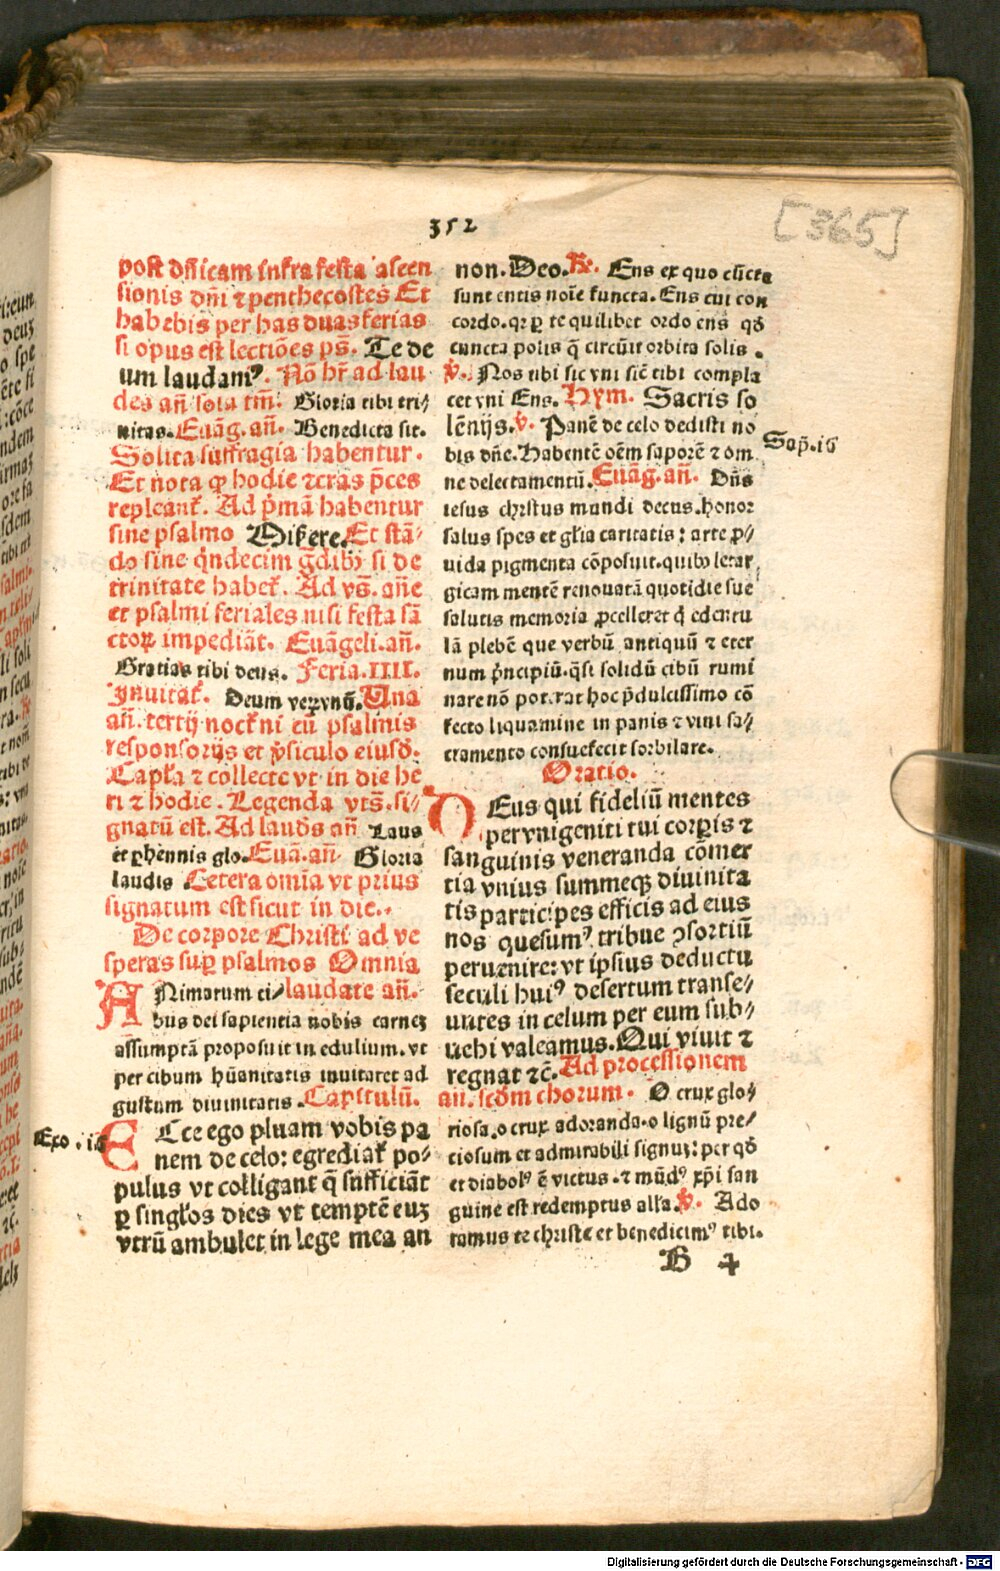 352
[365]
post dn̄icam infra festa ascen
sionis dn̄i ⁊ penthecostes Et
habebis per has duas ferias
si opus est lectiōes ps̄. Te de
um laudamꝰ. Nō hr̄ ad lau
des an̄ sola tm̄. Gloria tibi tri⸗
nitas. Euāg. an̄. Benedicta sit.
Solita suffragia habentur.
Et nota ꝙ hodie ⁊ cras p̄ces
repleant̄. Ad p̄mā habentur
sine psalmo Miserere. Et stā⸗
do sine q̇ndecim ḡdibꝫ si de
trinitate habet̄. Ad vs̄. an̄e
et psalmi feriales nisi festa sā
ctoꝝ impediāt. Euāgeli. an̄.
Gratias tibi deus. Feria. IIII.
Inuitat̄. Deum veꝝ vnū. Una
an̄. tertij noct̄ni cū psalmis
responsorijs et v̇siculo eiusd̄.
Capl̄a ⁊ collecte vt in die he
ri ⁊ hodie. Legenda vts̄. si⸗
gnatū est. Ad laud̄s an̄ Laus
et ꝑhennis glo. Euā. an̄. Gloria
laudis Cetera omīa vt prius
signatum est sicut in die.
De corpore Christi ad ve
speras suꝑ psalmos Omnia
ANimarum ci⸗ laudate an̄.
bus dei sapientia nobis carneꝫ
assumptā proposuit in edulium. vt
per cibum hūanitatis inuitaret ad
gustum diuinitatis. Capitulū.
Exo. 16
ECce ego pluam vobis pa
nem de celo: egrediat̄ po⸗
pulus vt colligant q̄ sufficiāt
ꝑ singl̄os dies vt temptē euꝫ
vtrū ambulet in lege mea an
non. Deo. ℟. Ens ex quo cūcta
sunt entis noīe functa. Ens cui con
cordo. qꝛ ꝑ te quilibet ordo ens qd̄
cuncta polis q̄ circūit orbita solis.
℣. Nos tibi sic vni sic̄ tibi compla
cet vni Ens. Hym. Sacris so
lēnijs. ℣. Panē de celo dedisti no
Sap̄. 16
bis dn̄e. Habentē oēm saporē ⁊ om
ne delectamentū. Euāg. an̄. Dn̄s
iesus christus mundi decus. honor
salus spes et gl̄ia caritatis: arte ꝓ⸗
uida pigmenta cōposuit. quibꝫ letar
gicam mentē renouatā quotidie sue
salutis memoria ꝓcelleret q̇ edentu
lā plebē que verbū antiquū ⁊ eter
num ṗncipiū. qsi solidū cibū rumi
nare nō poterat hoc p̄dulcissimo cō
fecto liquamine in panis ⁊ vini sa⸗
cramento consuefecit sorbilare.
Oratio.
DEus qui fideliū mentes
per vnigeniti tui corꝑis ⁊
sanguinis veneranda cōmer
tia vnius summeqꝫ diuinita
tis participes efficis ad eius
nos quesumꝰ tribue ↄsortiū
peruenire: vt ipsius deductu
seculi huiꝰ desertum transe⸗
untes in celum per eum sub⸗
uehi valeamus. Qui viuit ⁊
regnat ⁊c̄. Ad processionem
an̄. scd̄m chorum. O crux glo⸗
riosa. o crux adoranda. o lignū pre⸗
ciosum et admirabili signuꝫ: per qd̄
et diabolꝰ ē victus. ⁊ mūdꝰ xp̄i san
guine est redemptus all̄a. ℣. Ado
ramus te christe et benedicimꝰ tibi.
B 4
Digitalisierung gefördert durch die Deutsche Forschungsgemeinschaft - DFG